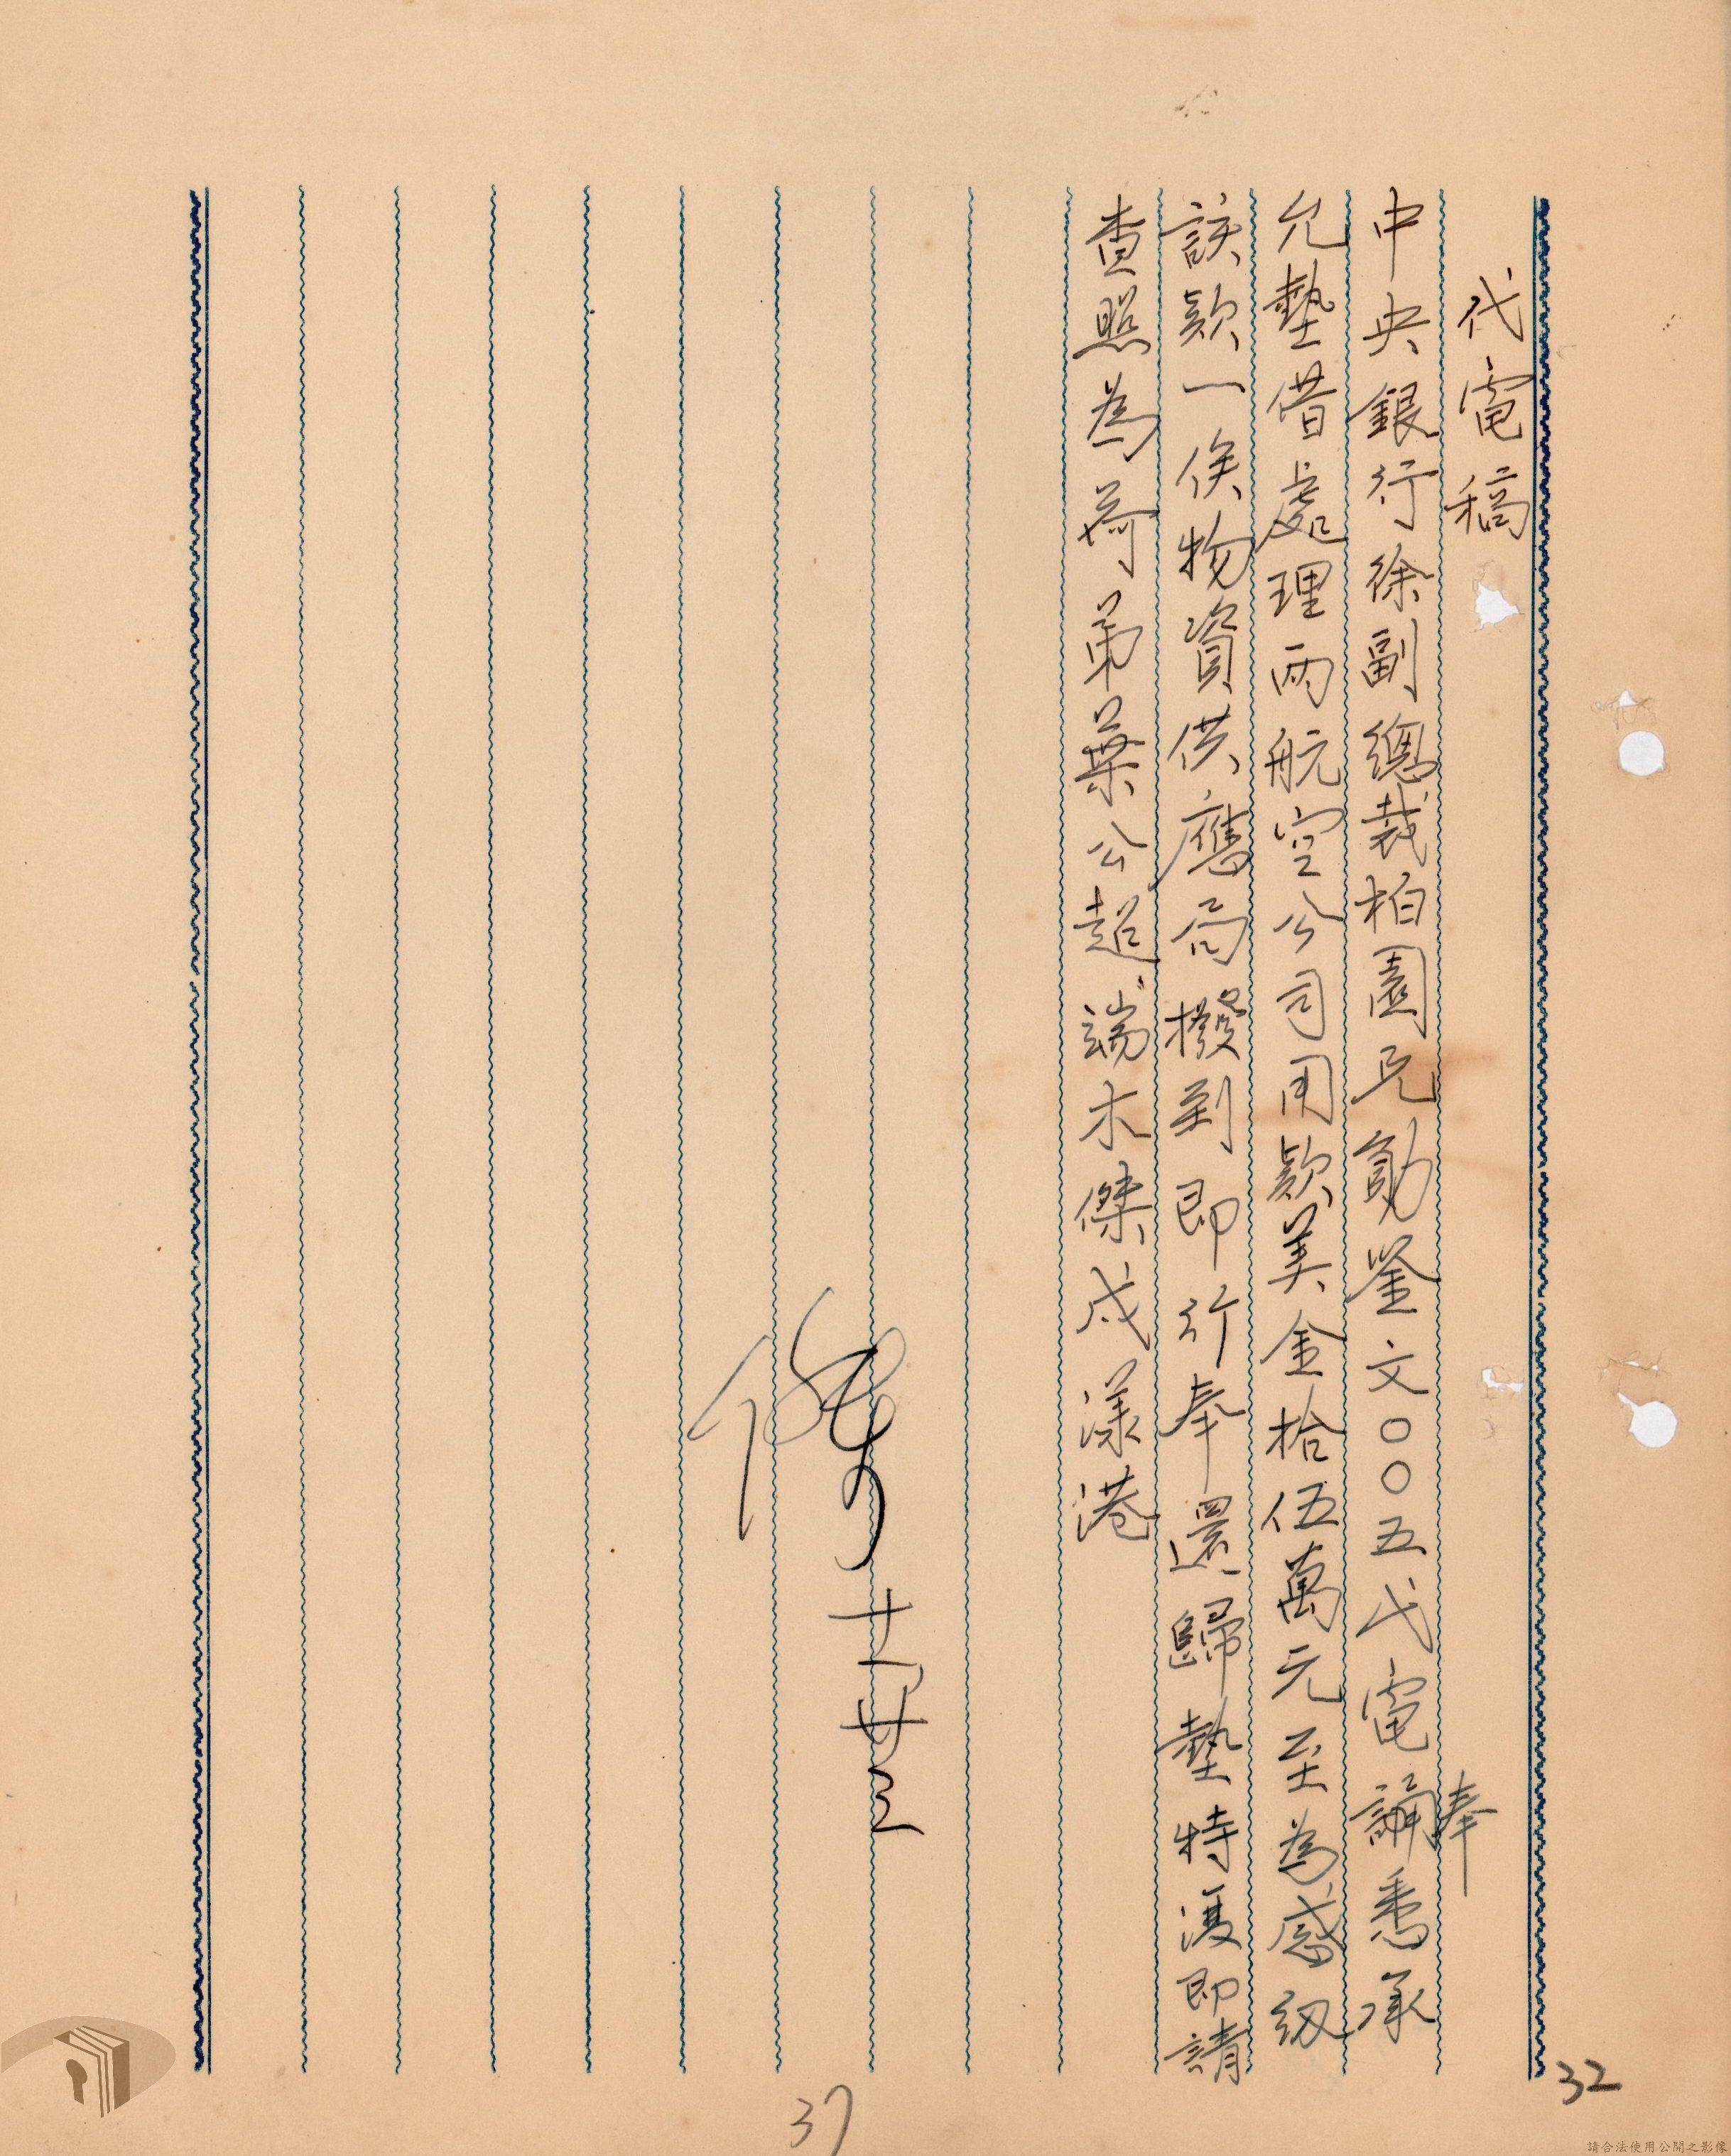 代電稿
中央銀行徐副總裁柏園兄勛鑒文〇〇五代電
奉
誦悉承
允墊借處理兩航空公司用款美金拾伍萬元至為感紉
該款一俟物資供應局撥到即行奉還歸墊特復即請
查照為荷弟葉公超端木傑戌漾港
十一廿三
37
32
請合法使用公開之影像